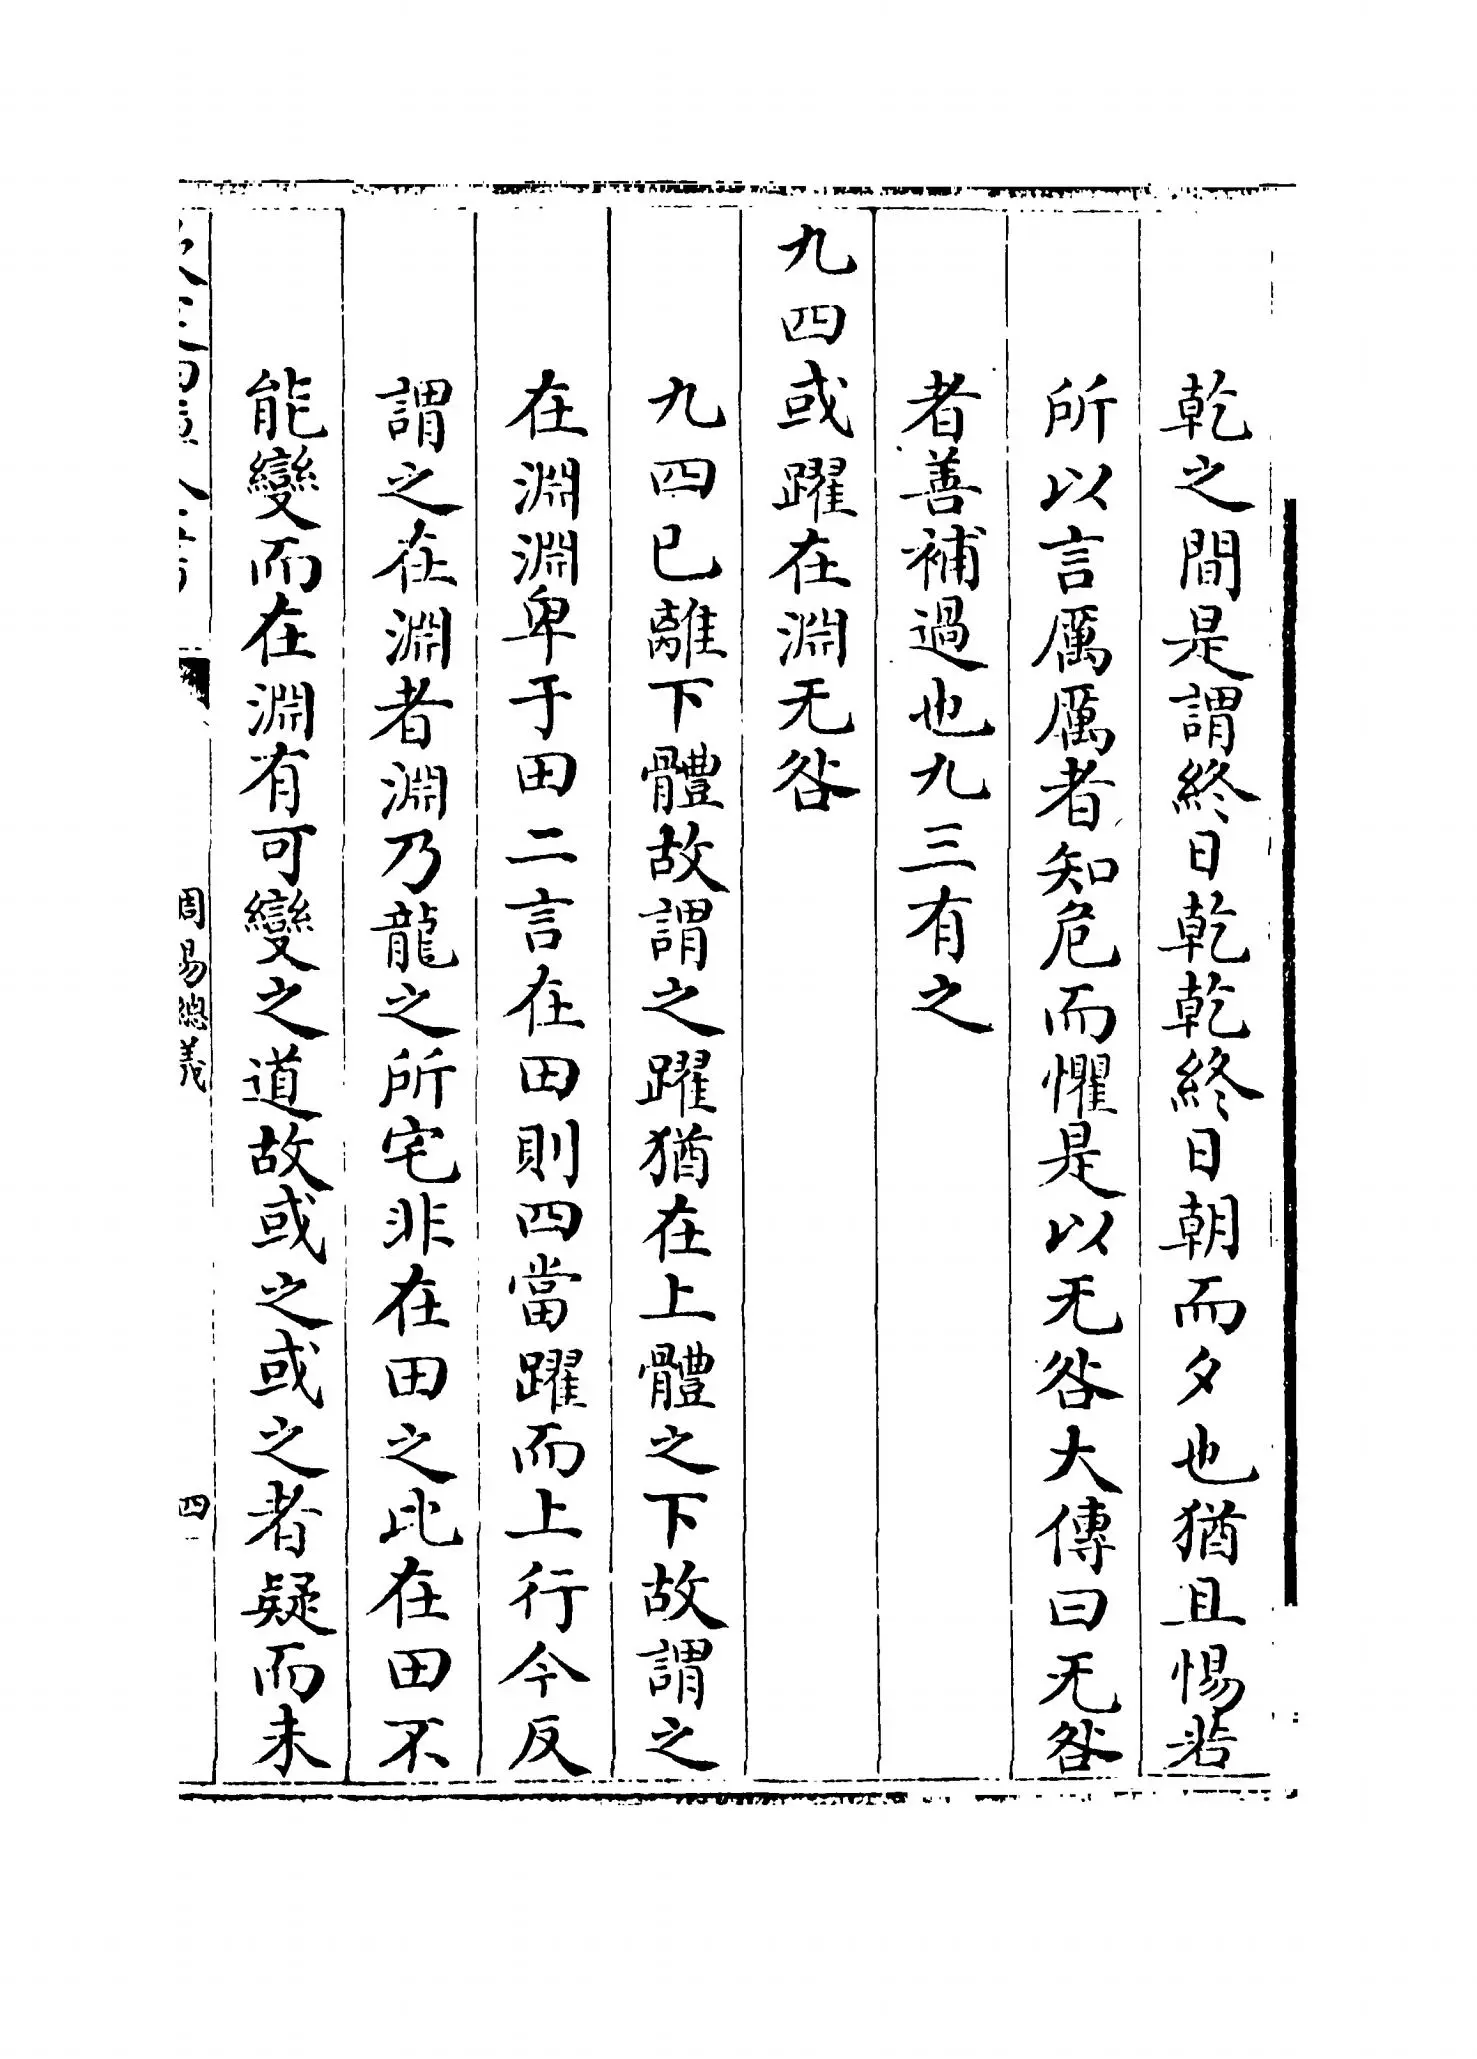 乾之間是謂終日乾乾終日朝而夕也猶且惕若
所以言厲厲者知危而懼是以无咎大傳曰无咎
者善補過也九三有之
九四或躍在淵无咎
九四已離下體故謂之躍猶在上體之下故謂之
在淵淵卑于田二言在田則四當躍而上行今反
謂之在淵者淵乃龍之所宅非在田之比在田不
能變而在淵有可變之道故或之或之者疑而未
周易總義
四